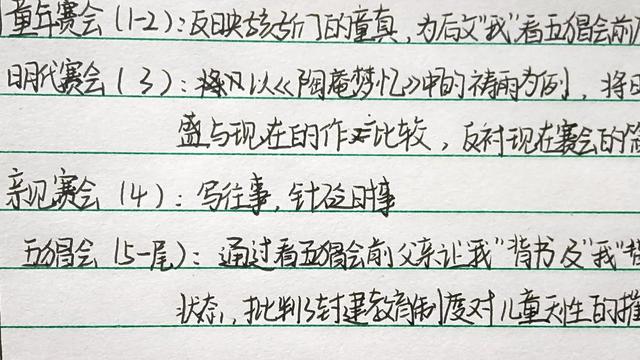 童年赛会（1-2）：反映孩子们的童真，为后文"我"看五猖会前
明代赛会（3）：以《陶庵梦忆》中的祷雨为例，将
盛与现在的作对比较，反衬现在赛会的
亲见赛会（4）：写往事，针砭时事
五猖会（5-尾）：通过看五猖会前父亲让"我"背书及"我"
状态，批判了封建教育制度对儿童天性的摧